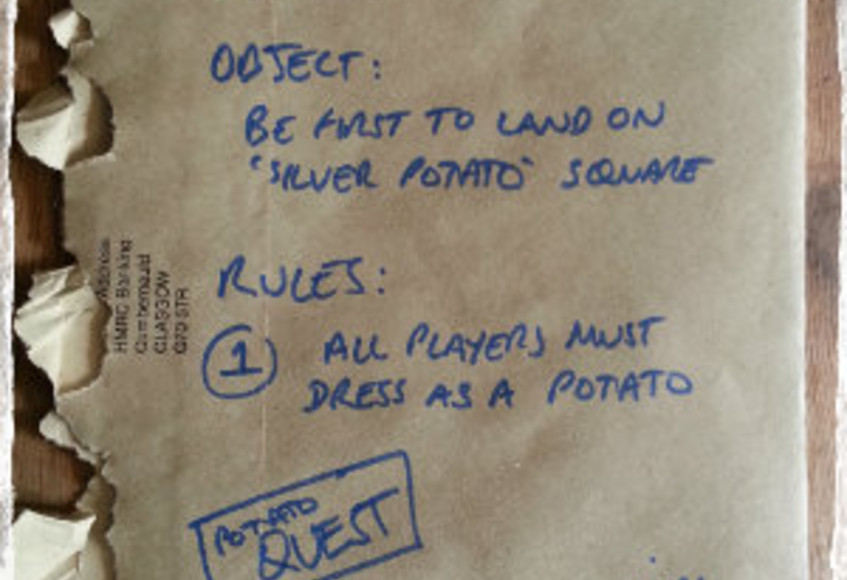 OBJECT:
BE FIRST TO LAND ON
"SILVER POTATO" SQUARE
RULES:
1 ALL PLAYERS MUST
DRESS AS A POTATO
POTATO
QUEST
HMRC Banking
Cumbernauld
GLASGOW
G70 5TR